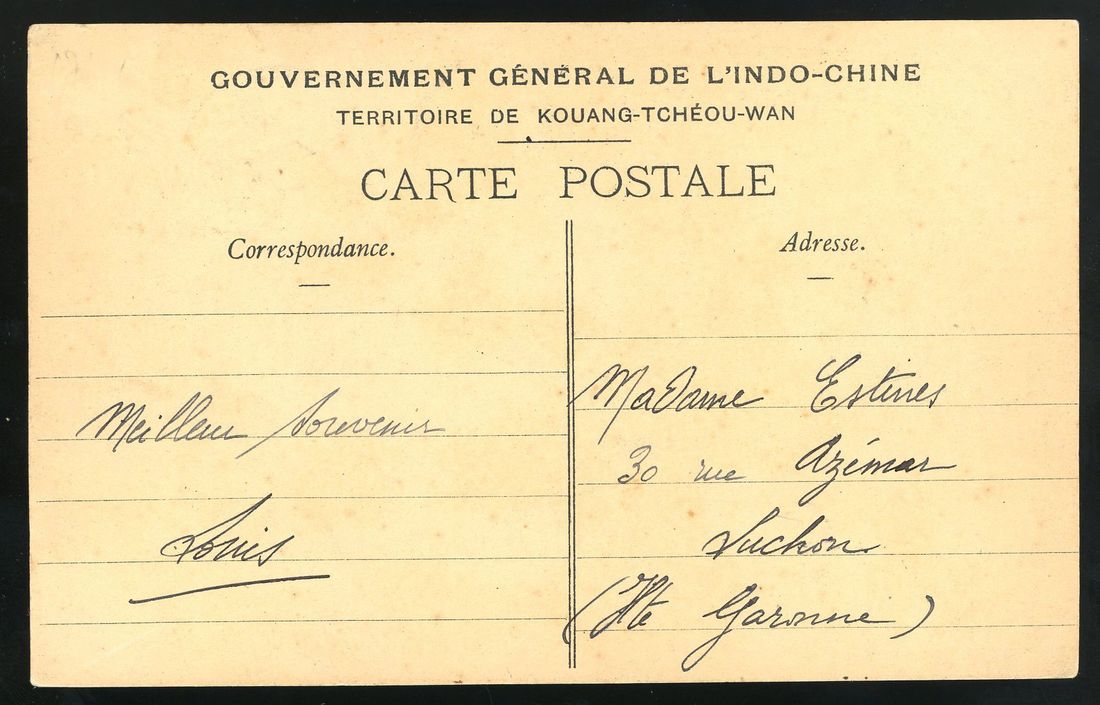 GOUVERNEMENT GÉNÉRAL DE L'INDO-CHINE
TERRITOIRE DE KOUANG-TCHÉOU-WAN
CARTE POSTALE
Correspondance.
Meilleur souvenir
Louis
Adresse.
Madame Estines
30 rue Azémar
Luchon
(Hte Garonne)